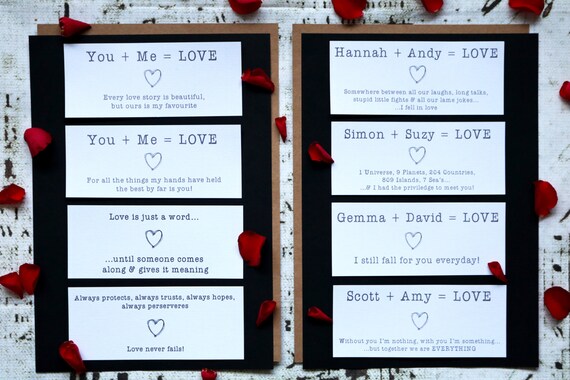 You + Me = LOVE
Every love story is beautiful,
but ours is my favourite
You + Me = LOVE
For all the things my hands have held
the best by far is you!
Love is just a word...
...until someone comes
along & gives it meaning
Always protects, always trusts, always hopes,
always perserveres
Love never fails!
Hannah + Andy = LOVE
Somewhere between all our laughs, long talks,
stupid little fights & all our lame jokes...
...I fell in love
Simon + Suzy = LOVE
1 Universe, 9 Planets, 204 Countries,
809 Islands, 7 Sea's...
...& I had the priviledge to meet you!
Gemma + David = LOVE
I still fall for you everyday!
Scott + Amy = LOVE
Without you I'm nothing, with you I'm something...
...but together we are EVERYTHING